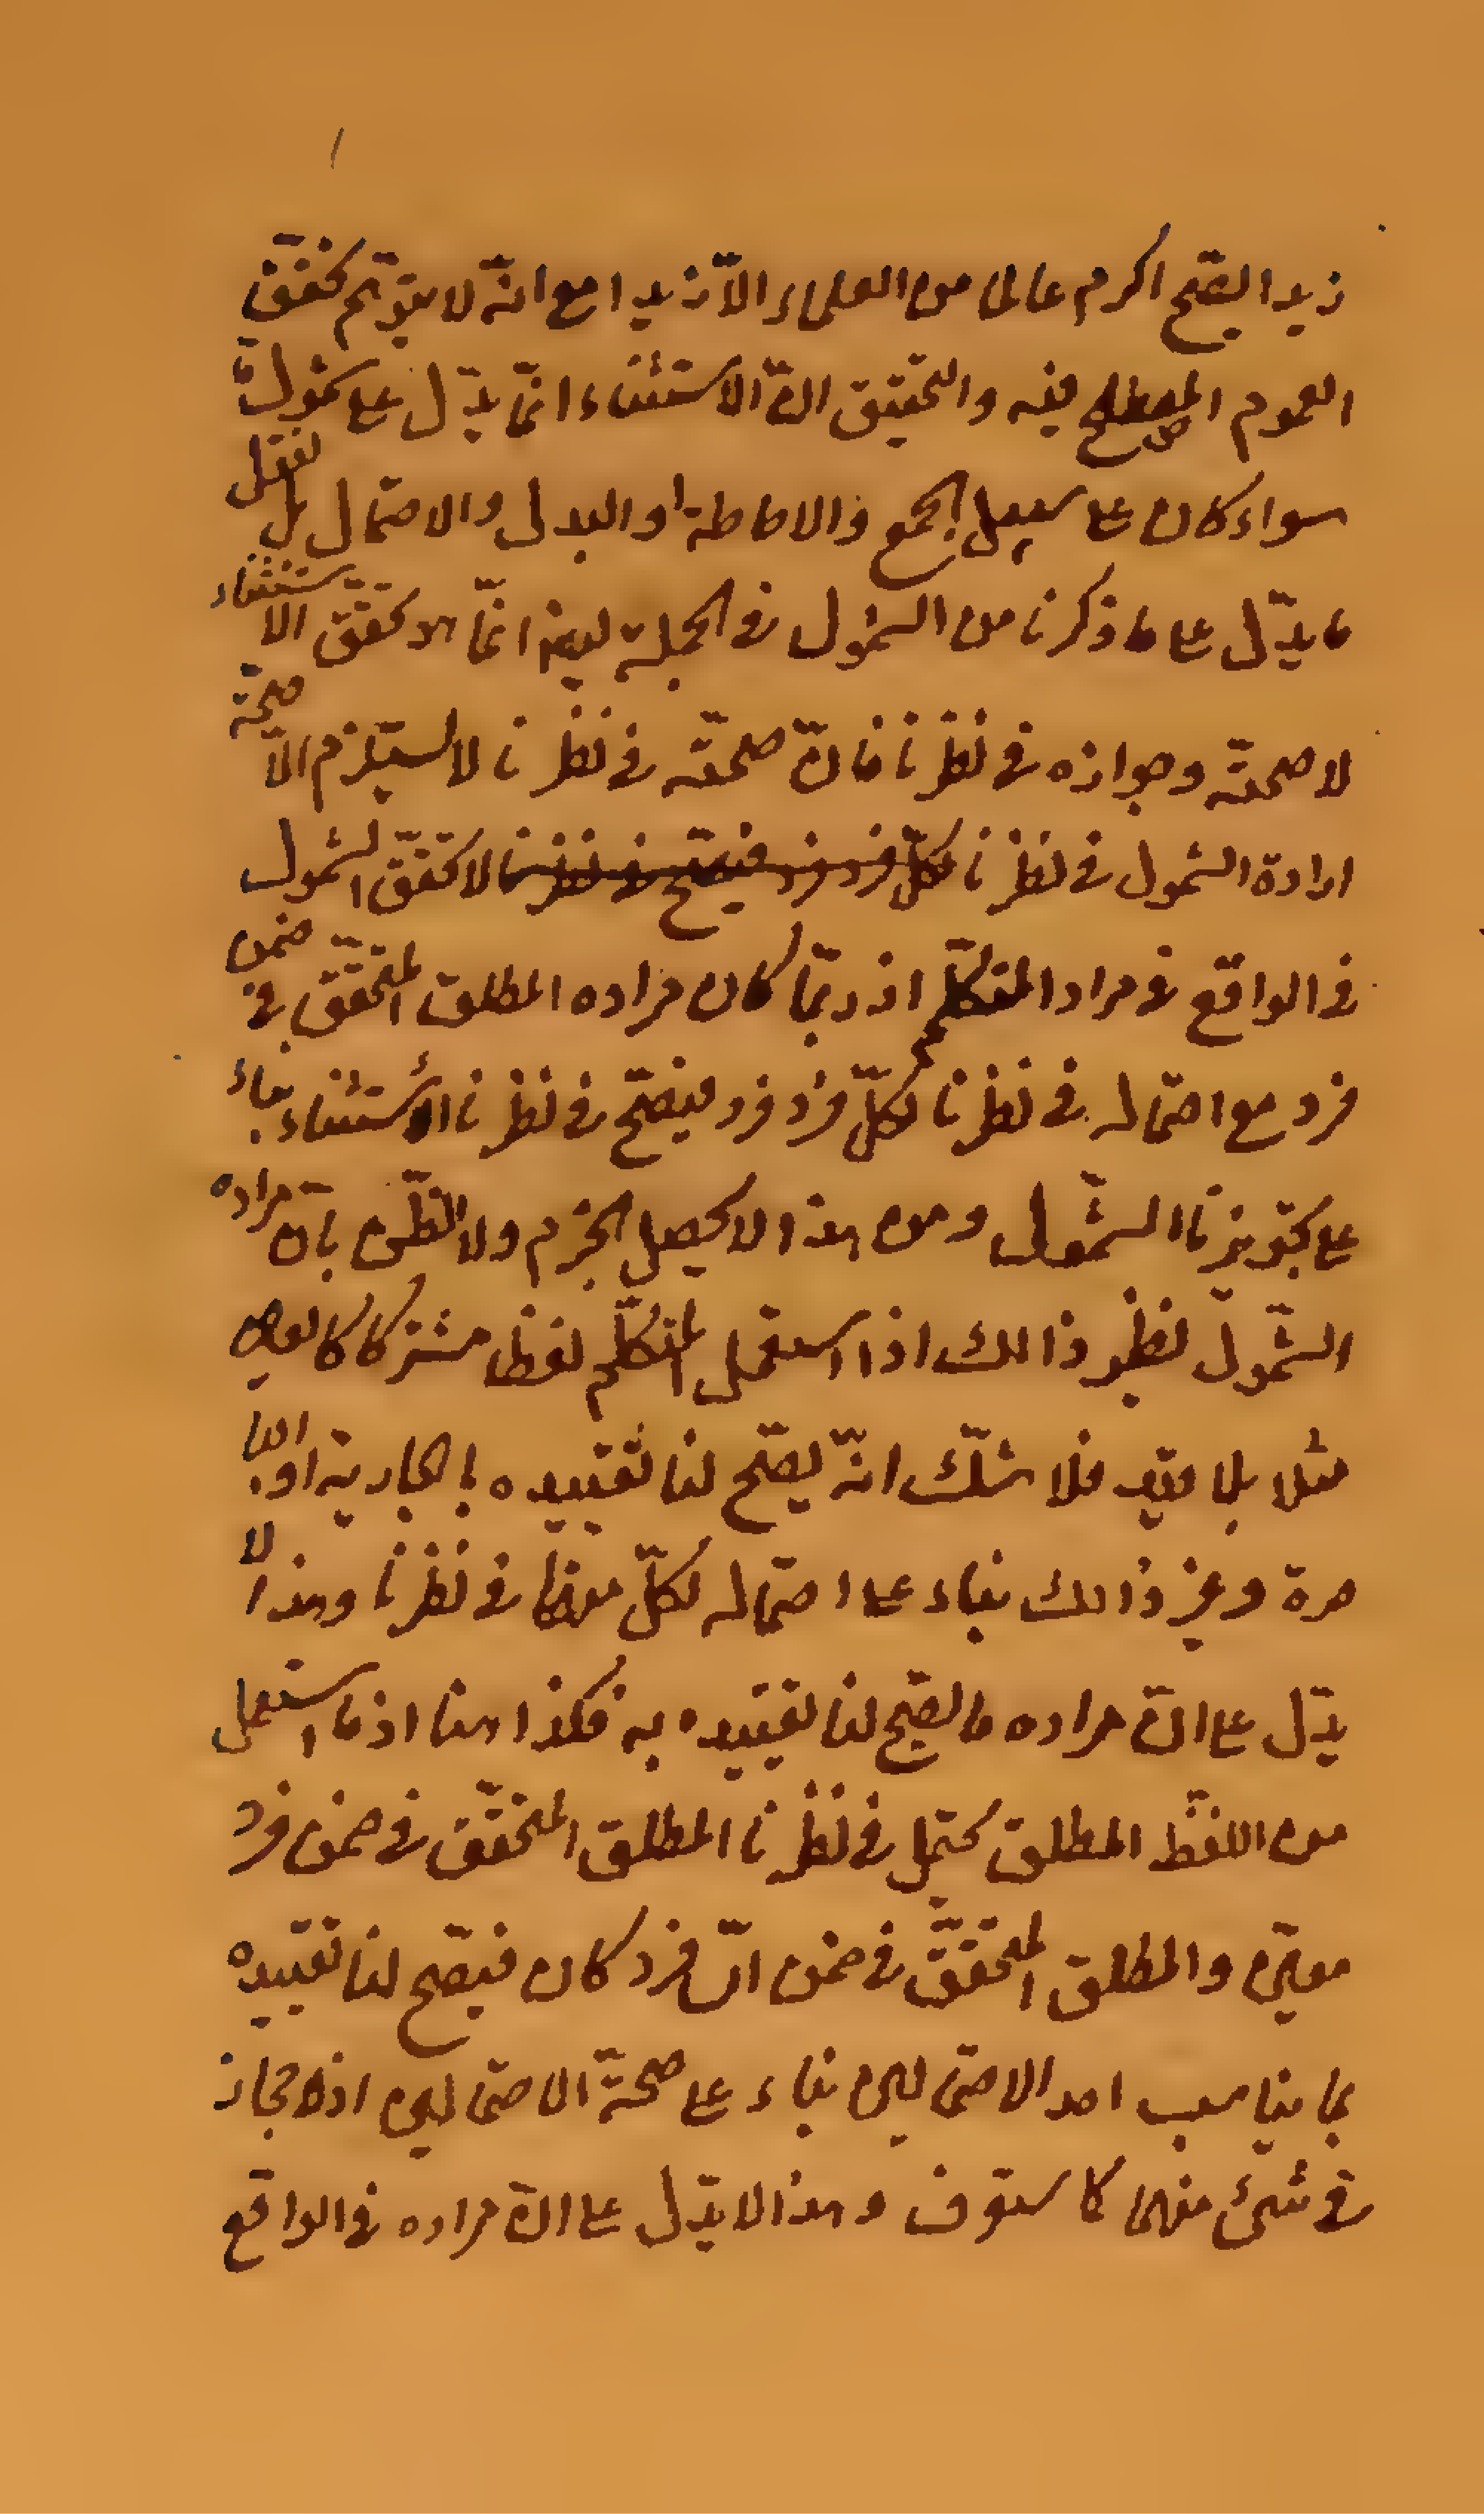 زيدا يصّح اكرم عالما من العلماء الاّ زيدا مع انّه لا يتوّهم تحقّق
العموم المصطلح فيه والتحقيق انّ الاستثناء انّما يدّل على شمول مّا
سواء كان على سبيل الجمع والاحاطة او البدل والاحتمال بل نقول
ما يدّل على ما ذكرنا من الشمول فى الجملة ايضا انّما هو تحقّق الاستثناء
لا صحتّه وجوازه فى نظرنا فانّ صحتّه فى نظرنا لا يستلزم الاّ صحّة
ارادة الشمول فى نظرنا لكلّ فرد فرد فيصّح فى نظرنا لا تحقّق الشمول
فى الواقع فى مراد المتكلّم اذ ربّما كان مراده المطلق المتحقّق فى ضمن
فرد مع احتماله فى نظرنا لكلّ فرد فرد فيصّح فى نظرنا الاستثناء بناء
على تجويزنا الشمّول ومن هذا لا يحصل الجزم ولا الظّن بانّ مراده
الشمّول نظير ذالك اذا استعمل المتكلّم لفظا مشتركا كالعين
مثلا بلا قيد فلا شكّ انّه يصّح لنا تقييده بالجارية او البا
صرة وغير ذالك بناء على احتماله لكلّ معنى فى نظرنا وهذا لا
يدّل على انّ مراده ما يصّح لنا تقييده به فكذا هنا اذ ما استعمل
من اللفظ المطلق يحتمل فى نظرنا المطلق المتحقّق فى ضمن فرد
معيّن والمطلق المتحقّق فى ضمن اىّ فرد كان فيصّح لنا تقييده
بما يناسب احد الاحتمالين بناء على صحّة الاحتمالين اذ لا مجاز
فى شىئ منهما كما ستعرف وهذا لا يدّل على انّ مراده فى الواقع